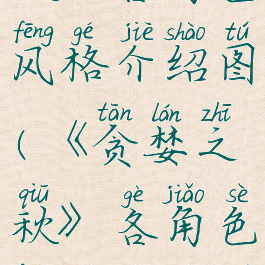 fēng gé jiè shào tú
风格介绍图
tān lán zhī
(《贪婪之
qiū gè jiǎo sè
秋》各角色